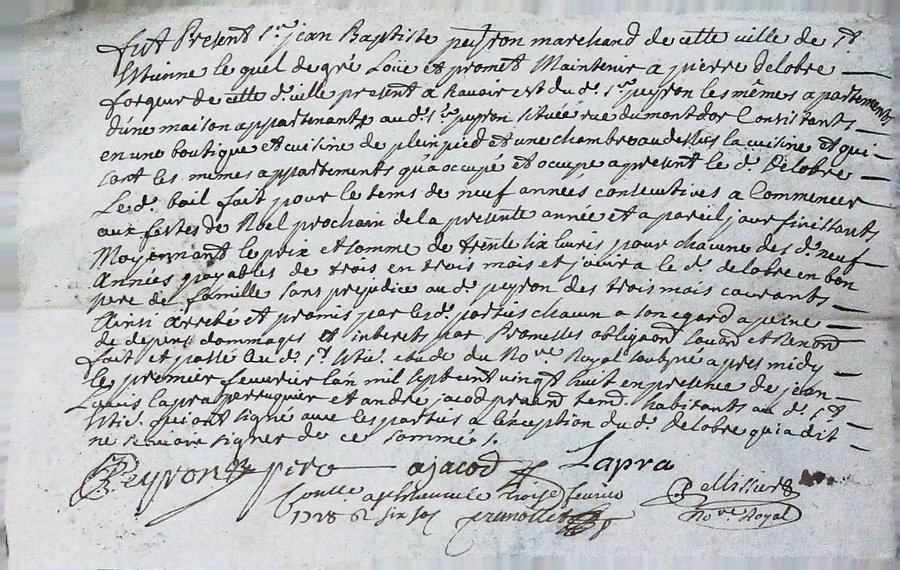 fut Present Sr. jean Baptiste peyron marchand de cette ville de St
Estienne le quel de gré Loüe et promet Maintenir a pierre Delobre
forgeur de cette d. ville present a scavoir est du d. Sr. peyron les mêmes apartements
d'une maison appartenante au d. Sr. peyron située rue du mont d'or Consistants
en une boutique et cuisine de plun pied et une chambre au dessus la cuisine et qui
sont les mêmes appartements qu'a occupé et occupe apresent le d. Delobre
Le d. bail fait pour le tems de neuf années consecutives a Commencer
aux festes de Noel prochain de la presente année et a pareil jour finissant
Moyennant le prix et somme de trente six livres pour chacune des d. neuf
Années payables de trois en trois mois et jouira le d. delobre en bon
pere de famille sans prejudice au d. peyron des trois mois courants
Ainsi arreté et promis par les d. parties chacun a son egard a peine
de depens dommages et interets par Promesses obligaons soumons et Renons
fait et passé au d. St. Esti. etude du No.re Royal soubné apres midy
les premier fevrier l'an mil sept cent vingt huit en presence de jean
Louis Lapra perruquier et andré jacod praand tem. habitants au d. St
Esti. qui ont signé avec les parties a l'exception du d. Delobre qui a dit
ne scavoir signer de ce sommé.
Peyron pero ajacod Lapra
fevrier
1728 six sols
Pellissier
No.re Royal